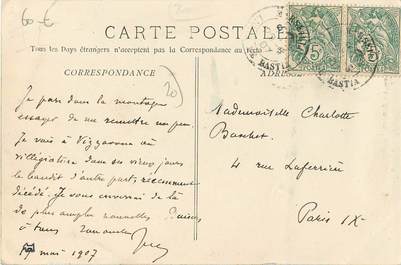 60 €
CARTE POSTALE
Tous les Pays étrangers n'acceptent pas la Correspondance au recto
CORRESPONDANCE
20
5
BASTIA
BASTIA
Je pars dans la montagne
essayer de me remettre un peu.
Je vais à Vizzavona en
villégiature dans
le bandit d'autre part, récemment
décédé. Je vous enverrai de là
de plus amples nouvelles
à tous
mai 1907
Mademoiselle Charlotte
4 rue Laferrière
Paris IX